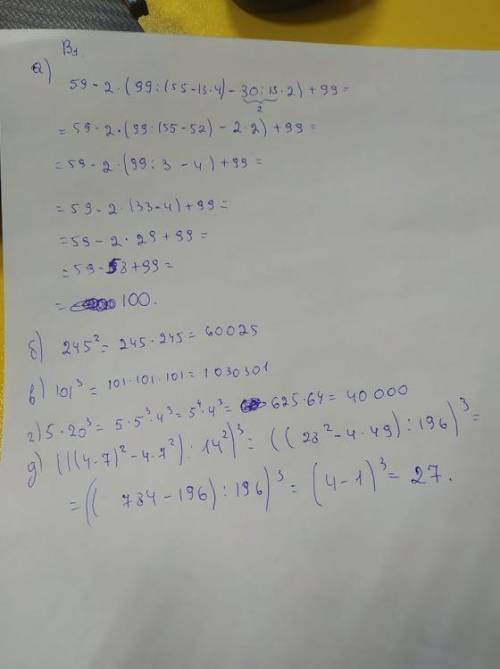 В1
а)
59 - 2 · (99 : (55 - 13·4) - 30 : 15 · 2) + 99 =
2
= 59 - 2 · (99 : (55 - 52) - 2·2) + 99 =
= 59 - 2 · (99 : 3 - 4) + 99 =
= 59 - 2 · (33 - 4) + 99 =
= 59 - 2 · 29 + 99 =
= 59 - 58 + 99 =
= 100.
б) 245² = 245 · 245 = 60025
в) 101³ = 101 · 101 · 101 = 1030301
г) 5 · 20³ = 5 · 5³ · 4³ = 5⁴ · 4³ = 625 · 64 = 40 000
д) (((4·7)² - 4·7²) : 14²)³ = ((28² - 4·49) : 196)³ =
= ((784 - 196) : 196)³ = (4 - 1)³ = 27.